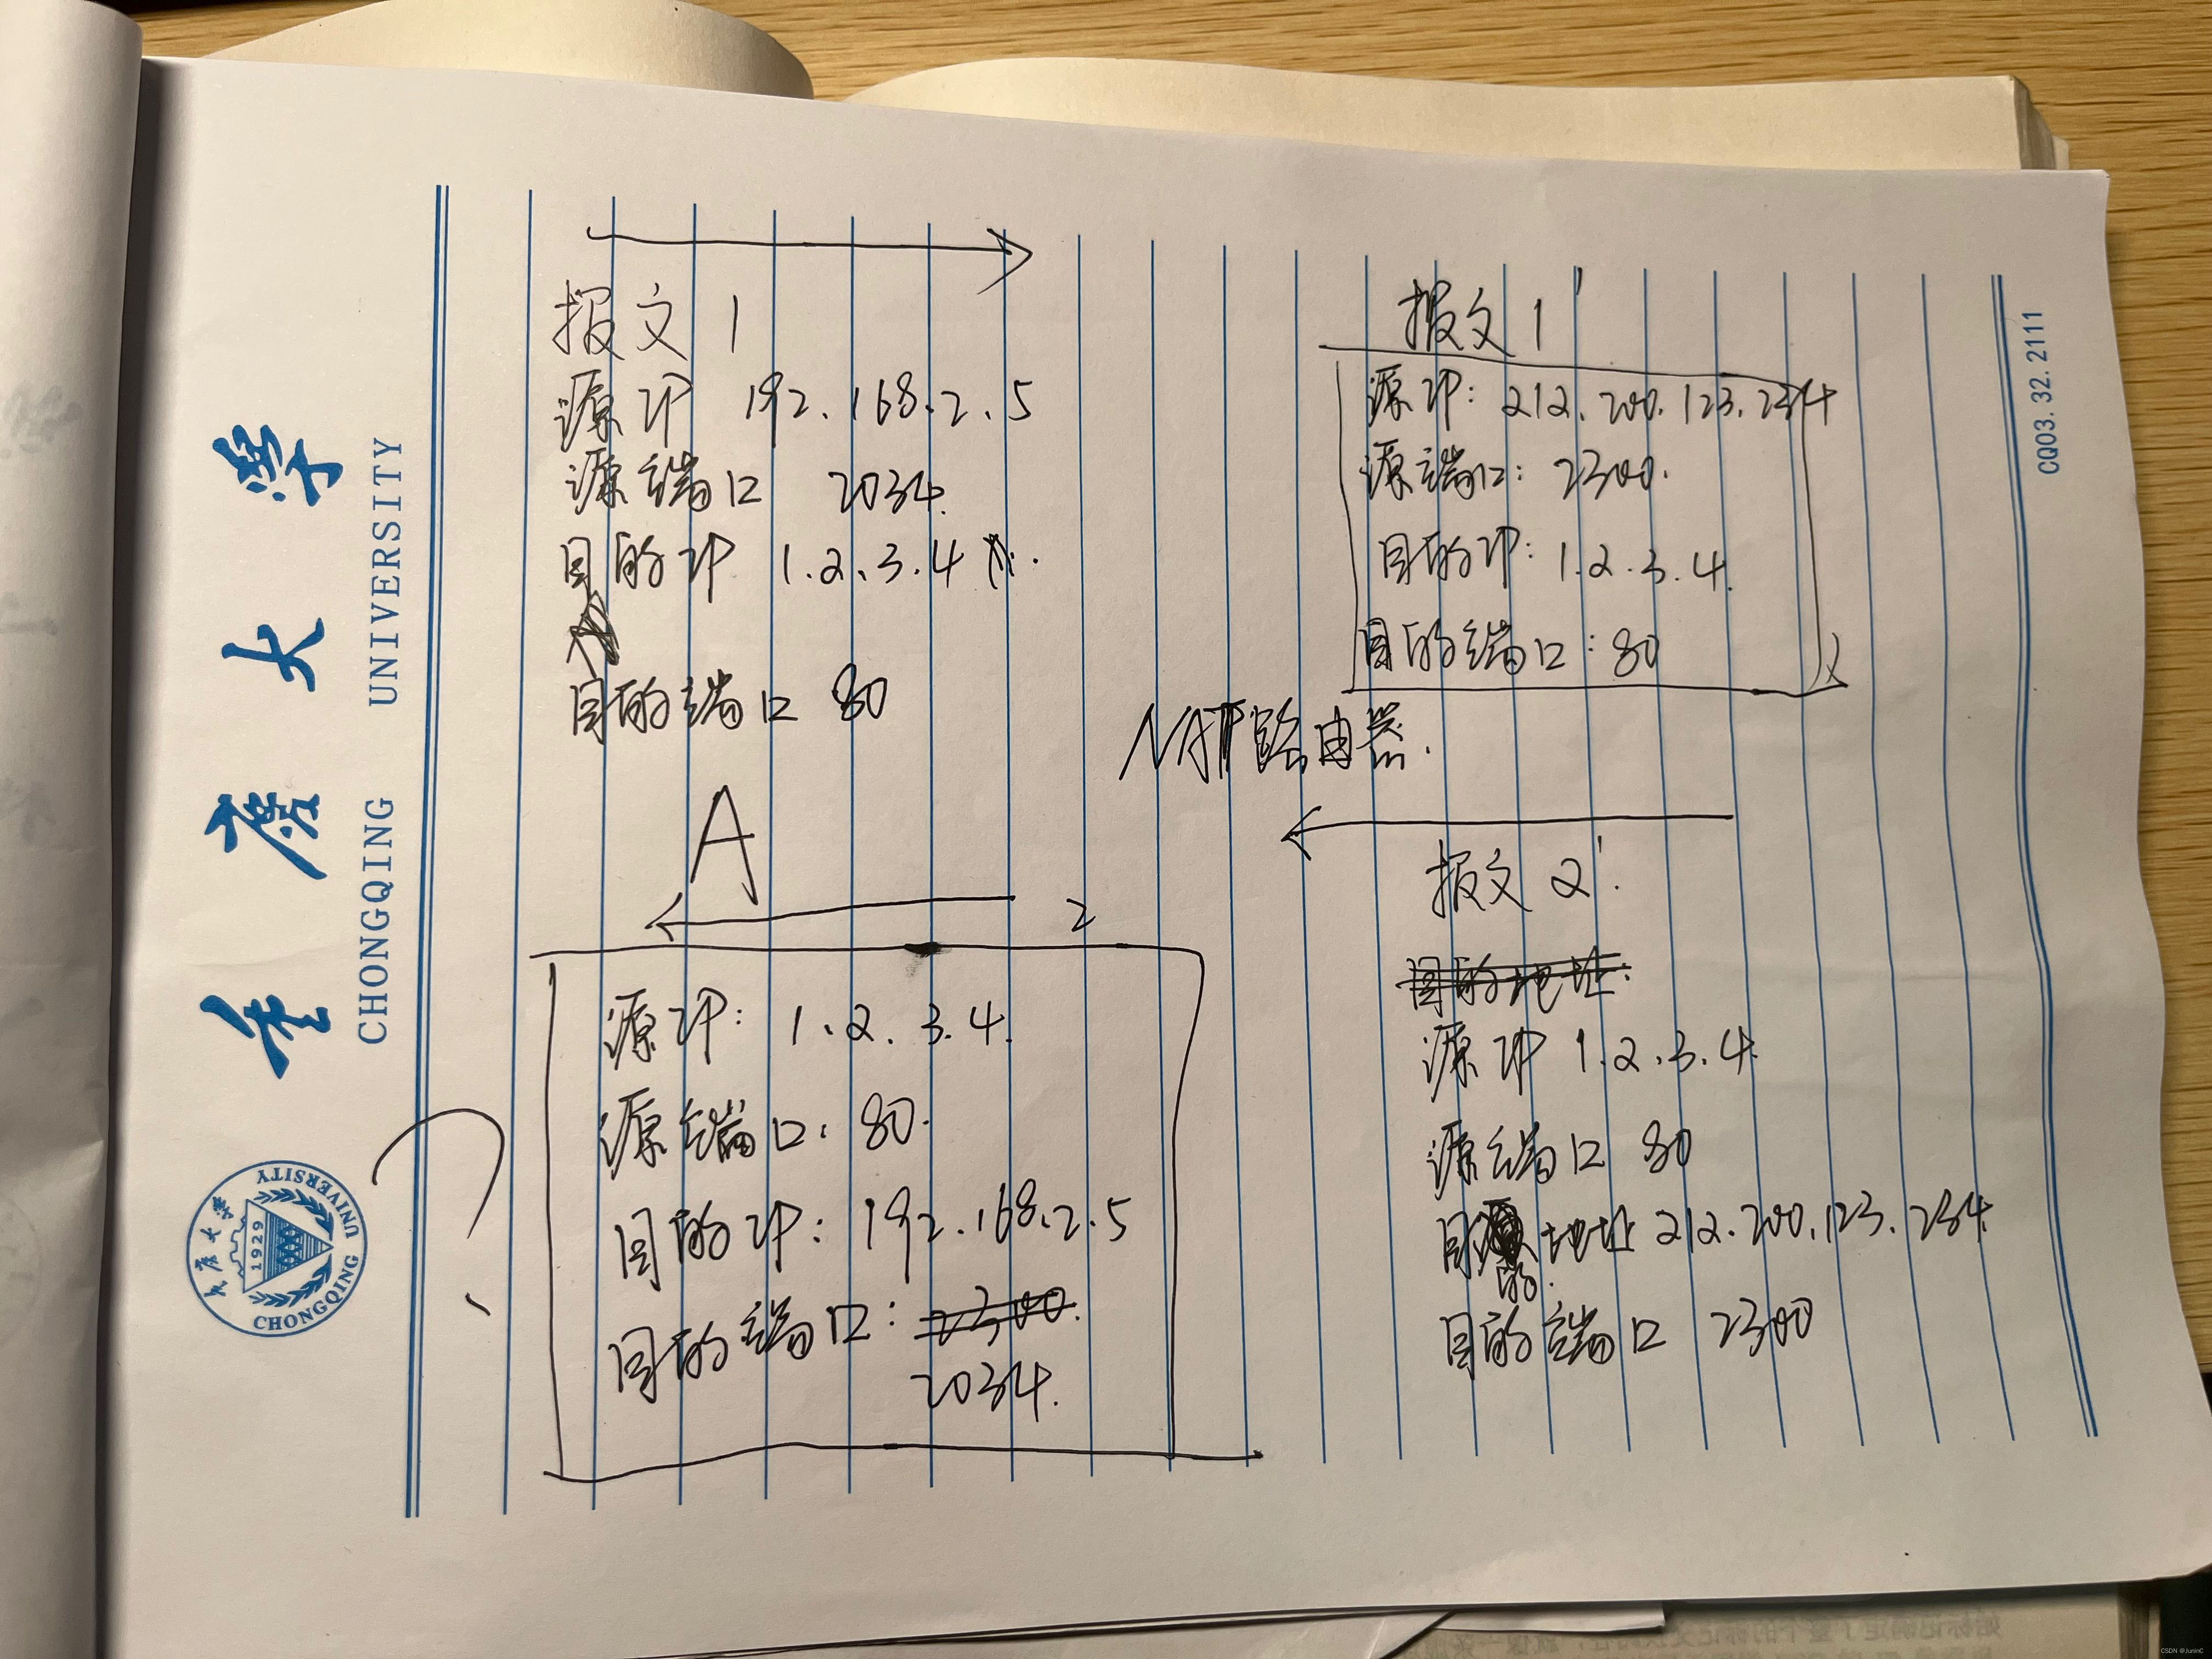 报文1
源IP 192.168.2.5
源端口 2034.
目的IP 1.2.3.4
目的端口 80
A
报文1'
源IP: 212.200.123.234
源端口: 2300.
目的IP: 1.2.3.4.
目的端口: 80
NAT路由器.
2
源IP: 1.2.3.4.
源端口: 80.
目的IP: 192.168.2.5
目的端口: 2300.
2034.
?
报文2'
目的地址:
源IP 1.2.3.4.
源端口 80
目的地址 212.200.123.234
目的端口 2300
重庆大学
CHONGQING UNIVERSITY
重庆大学
1929
CHONGQING UNIVERSITY
CQ03.32.2111
CSDN @JuninC